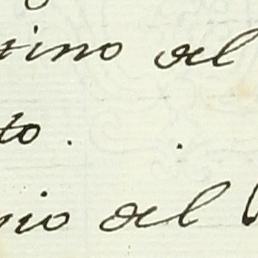 tino del
to .   .
nio del V